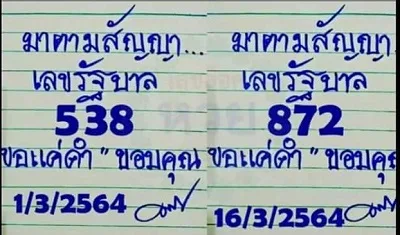 มาตามสัญญา...
เลขรัฐบาล
538
ขอแค่คำ "ขอบคุณ
1/3/2564
มาตามสัญญา..
เลขรัฐบาล
872
ขอแค่คำ "ขอบคุณ
16/3/2564